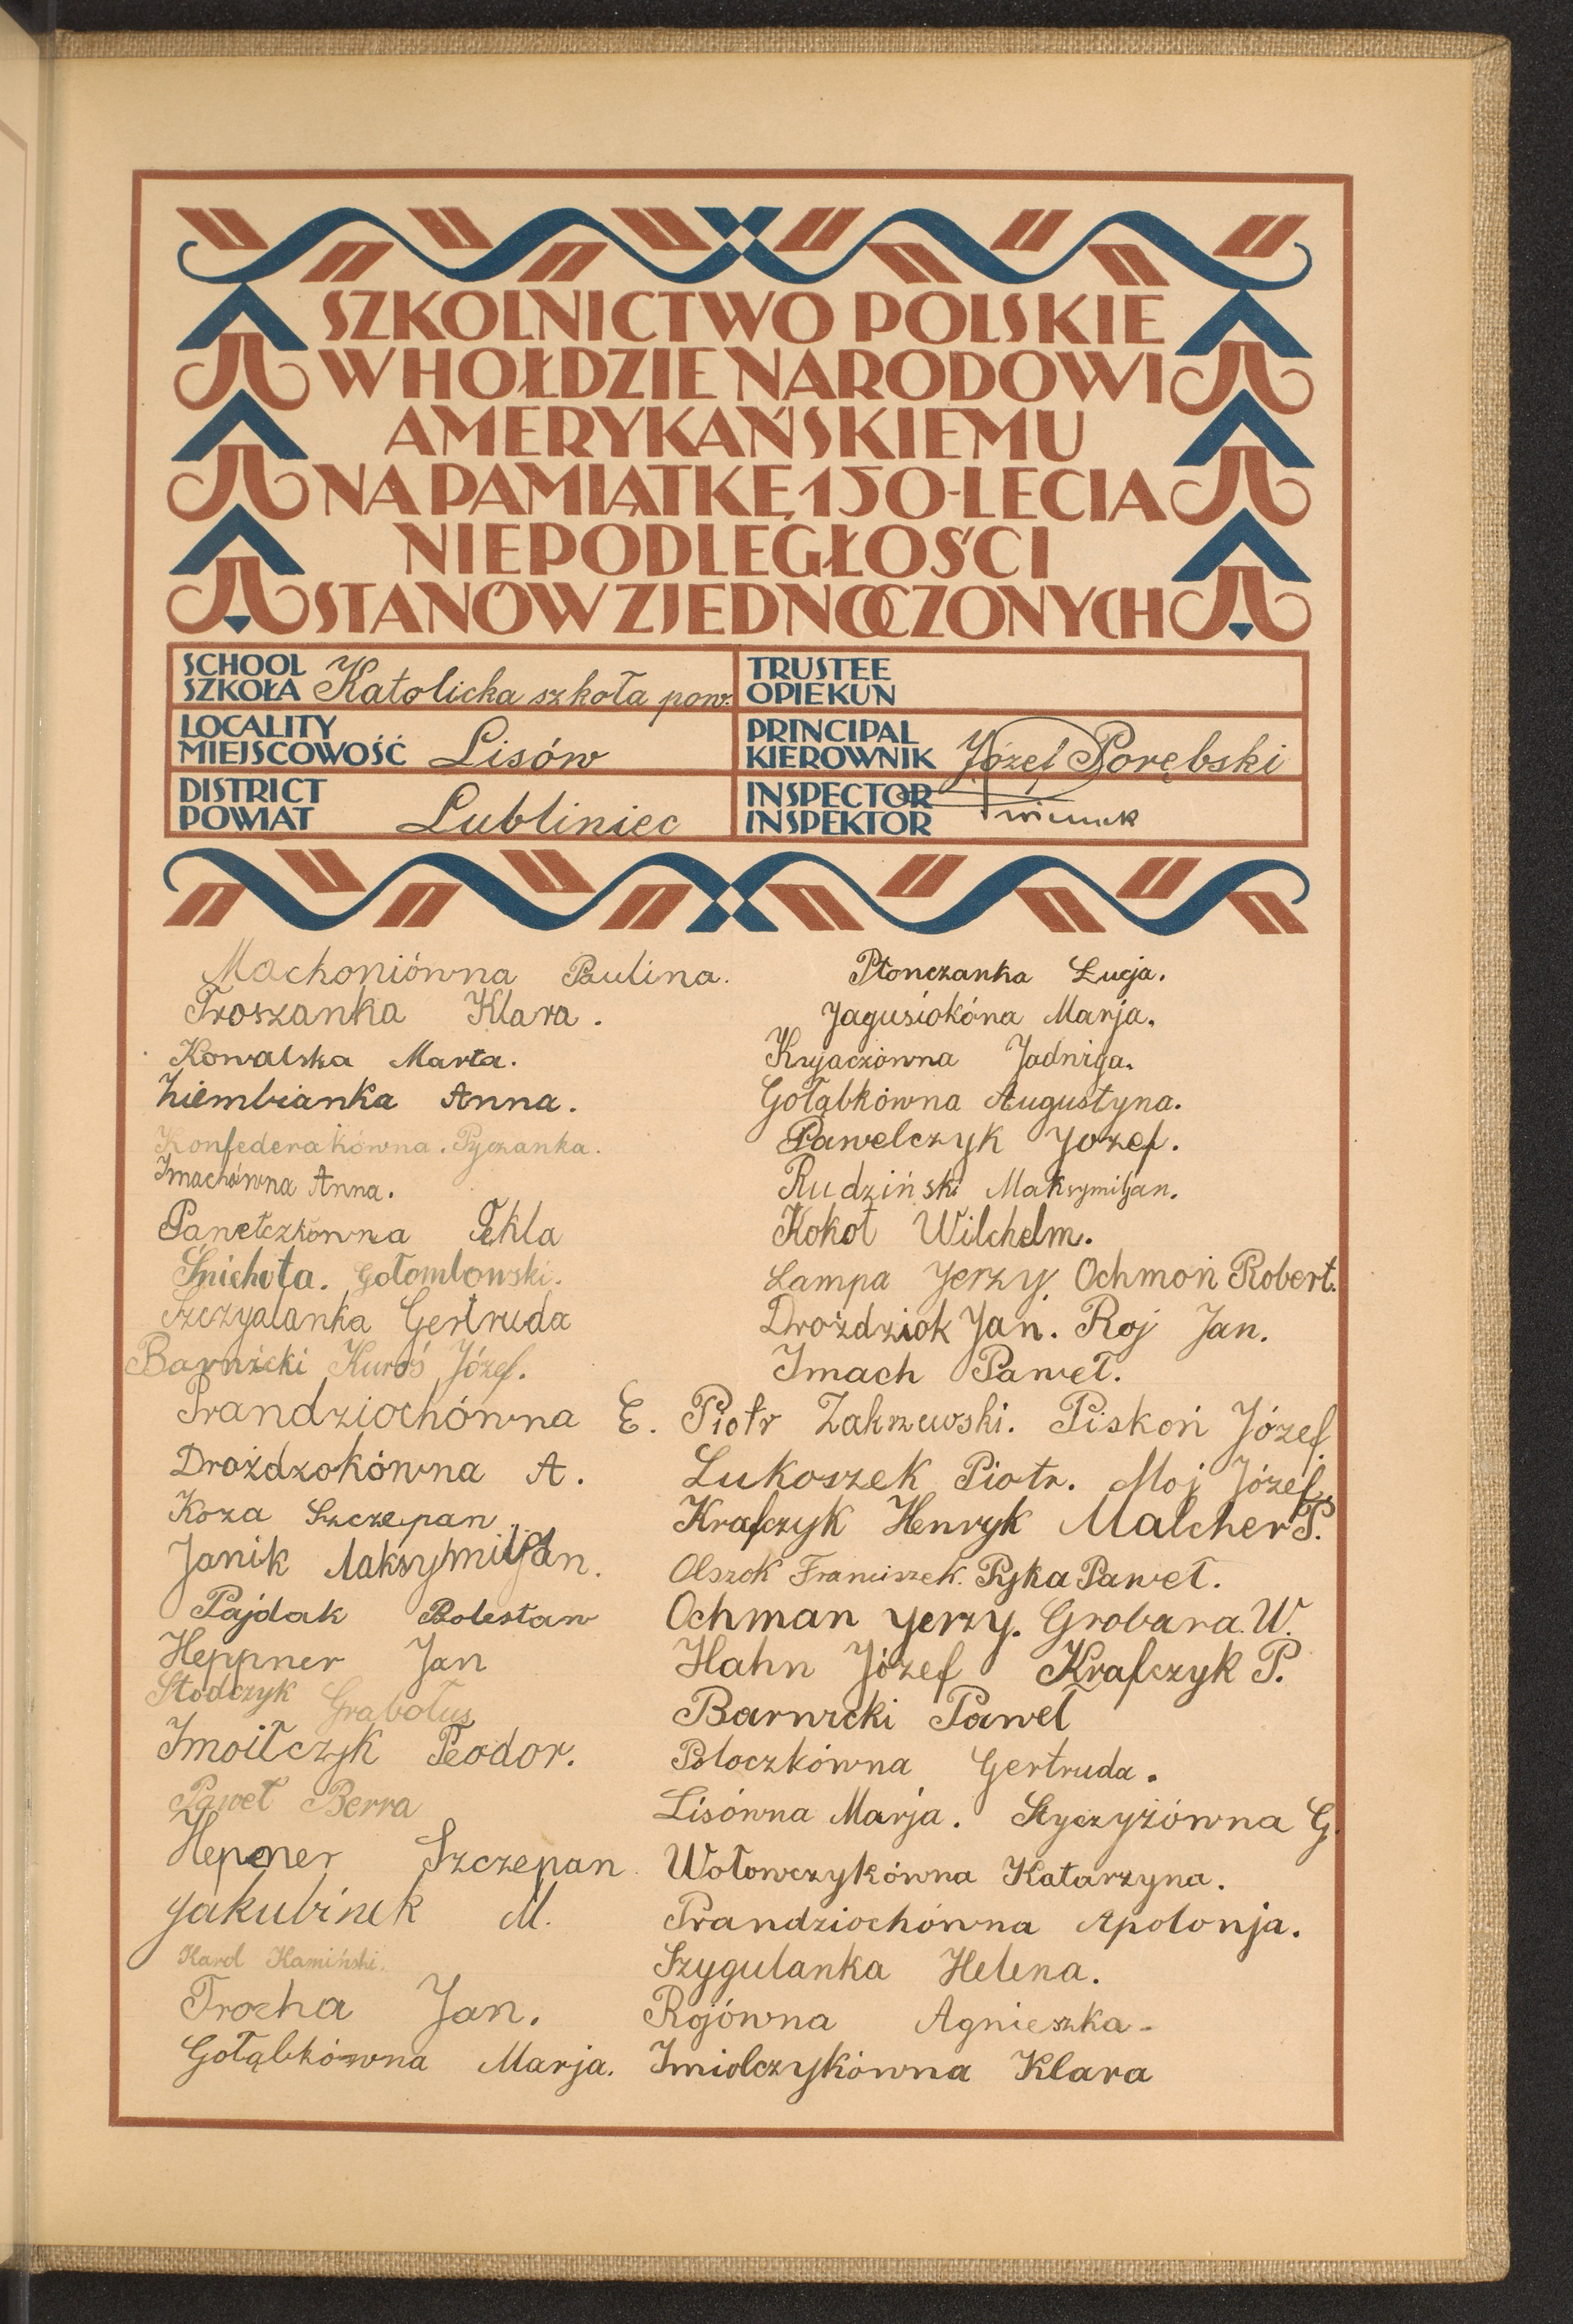 SZKOLNICTWO POLSKIE
W HOŁDZIE NARODOWI
AMERYKAŃSKIEMU
NA PAMIĄTKĘ 150-LECIA
NIEPODLEGŁOŚCI
STANÓW ZJEDNOCZONYCH
SCHOOL
SZKOŁA Katolicka szkoła pow.
LOCALITY
MIEJSCOWOŚĆ Lisów
DISTRICT
POWIAT Lubliniec
TRUSTEE
OPIEKUN
PRINCIPAL
KIEROWNIK Józef Porębski
INSPECTOR
INSPEKTOR
Machoniówna Paulina.
Proszanka Klara.
Kowalska Marta.
Ziembianka Anna.
Konfederakówna. Pyczanka.
Imachówna Anna.
Panełczkówna Tekla
Śnichota. Gołombowski.
Gertruda
Barnicki Kuroś Józef.
Prandziochówna E.
Droździokówna A.
Koza Szczepan
Janik Maksymiljan.
Pajdak Bolesław
Heppner Jan
Stodczyk Grabolus
Imoiłczyk Teodor.
Paweł Berra
Hepner Szczepan
Jakubinek M.
Karol Kamiński.
Trocha Jan.
Gołąbkówna Marja.
Płonczanka Łucja.
Jagusiokóna Marja.
Kryjaczówna Jadwiga.
Gołąbkówna Augustyna.
Pawelczyk Jozef.
Rudziński Maksymiljan.
Kokot Wilchelm.
Lampa Jerzy. Ochmoń Robert.
Droździok Jan. Roj Jan.
Imach Paweł.
Piotr Zakrzewski. Piskoń Józef.
Lukoszek Piotr. Moj Józef.
Krafczyk Henryk Malcher P.
Olszok Franciszek. Pyka Paweł.
Ochman Jerzy. Grobara. W.
Hahn Józef Krafczyk P.
Barwicki Paweł
Poloczkówna Gertruda.
Lisówna Marja. Styczyżówna G.
Wołowczykówna Katarzyna.
Prandziochówna Apolonja.
Szygulanka Helena.
Rojówna Agnieszka-
Imiolczykówna Klara